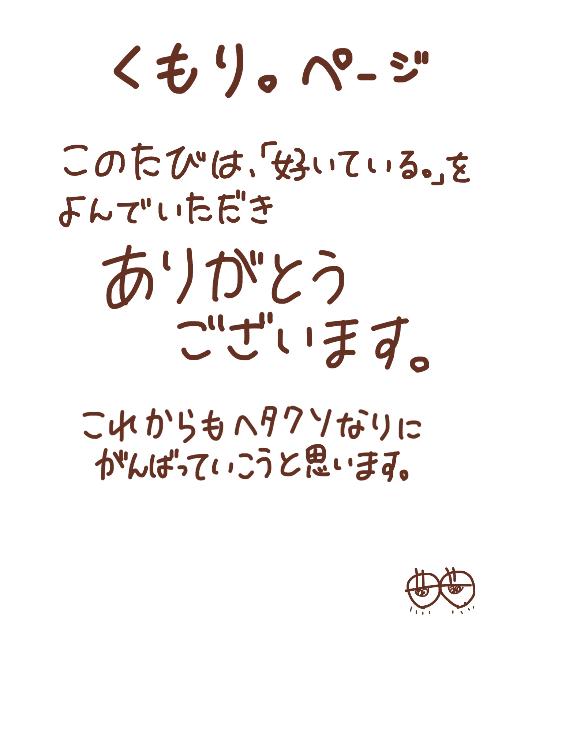 くもり。ページ
このたびは、「好いている。」を
よんでいただき
ありがとう
ございます。
これからもヘタクソなりに
がんばっていこうと思います。